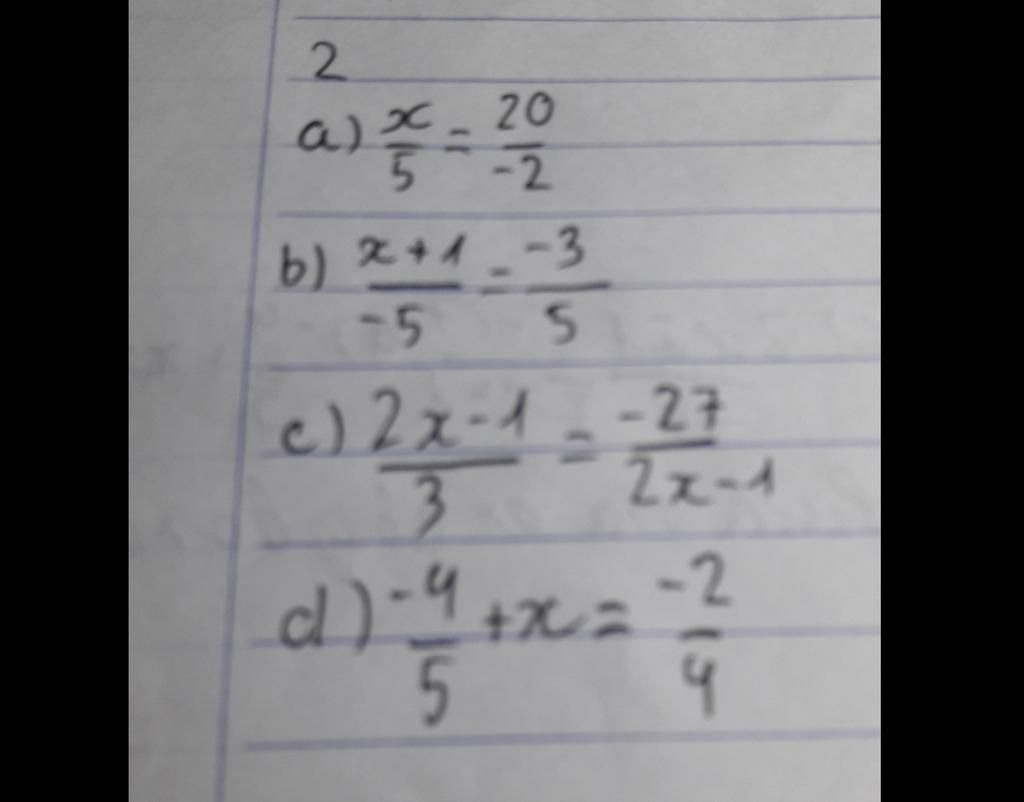 2
a) x/5 = 20/-2
b) x+1/-5 = -3/5
c) 2x-1/3 = -27/2x-1
d) -4/5 +x = -2/4